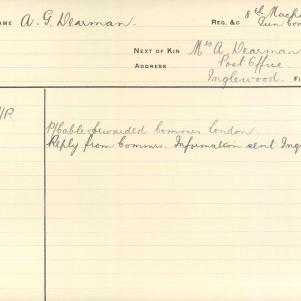 NAME A. G. Dearman. REG. &C 8th Mach
Gun Com
NEXT OF KIN Mrs A. Dearman
ADDRESS Post Office
Inglewood. FI
/P. P/Cable forwarded Commrs London.
Reply from Commrs. Information sent Ing